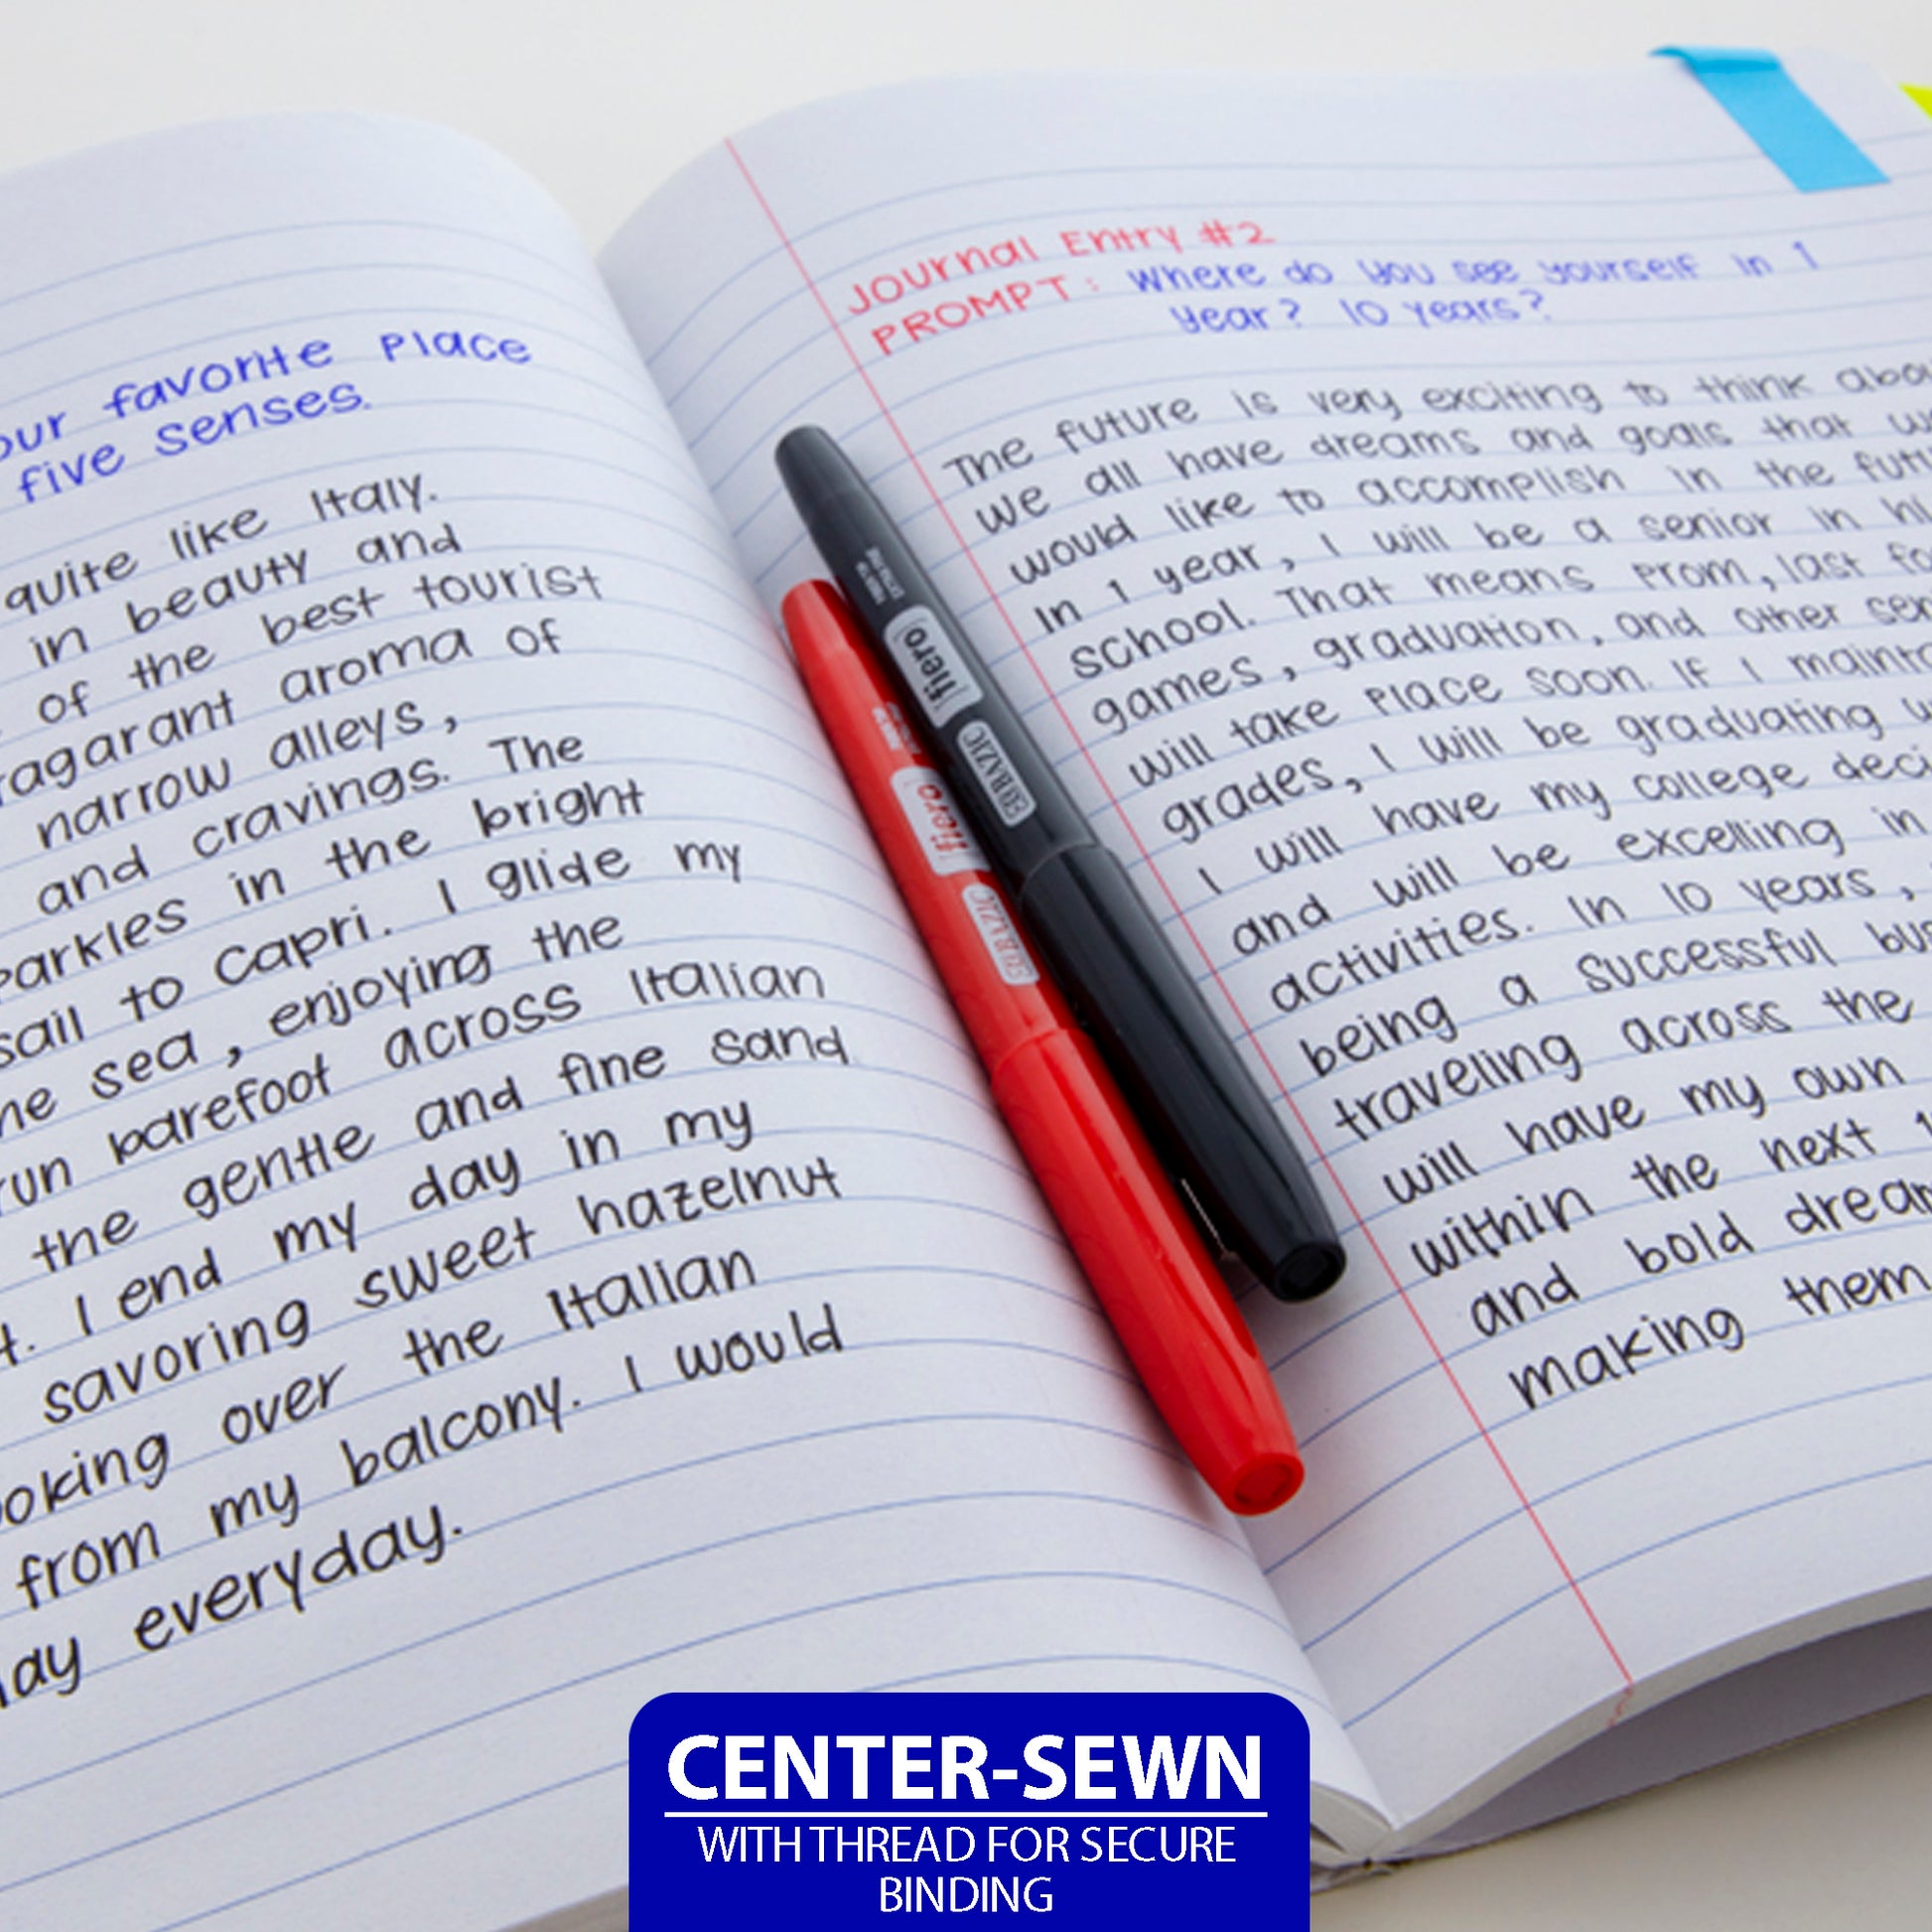 our favorite place
five senses.
quite like Italy.
in beauty and
of the best tourist
ragarant aroma of
narrow alleys,
and cravings. The
parkles in the bright
sail to Capri. I glide my
he sea, enjoying the
run barefoot across Italian
the gentle and fine sand
t. I end my day in my
savoring sweet hazelnut
ooking over the Italian
from my balcony. I would
lay everyday.
Journal Entry #2
PROMPT: Where do you see yourself in 1
year? 10 years?
The future is very exciting to think abou
We all have dreams and goals that w
would like to accomplish in the futu
In 1 year, I will be a senior in hi
school. That means prom, last fo
games, graduation, and other sen
will take place soon. If I mainta
grades, I will be graduating w
I will have my college deci
and will be excelling in
activities. In 10 years,
being a successful bus
traveling across the
will have my own
within the next 1
and bold dream
making them
fiero
BAZIC
fiero
BAZIC
CENTER-SEWN
WITH THREAD FOR SECURE
BINDING